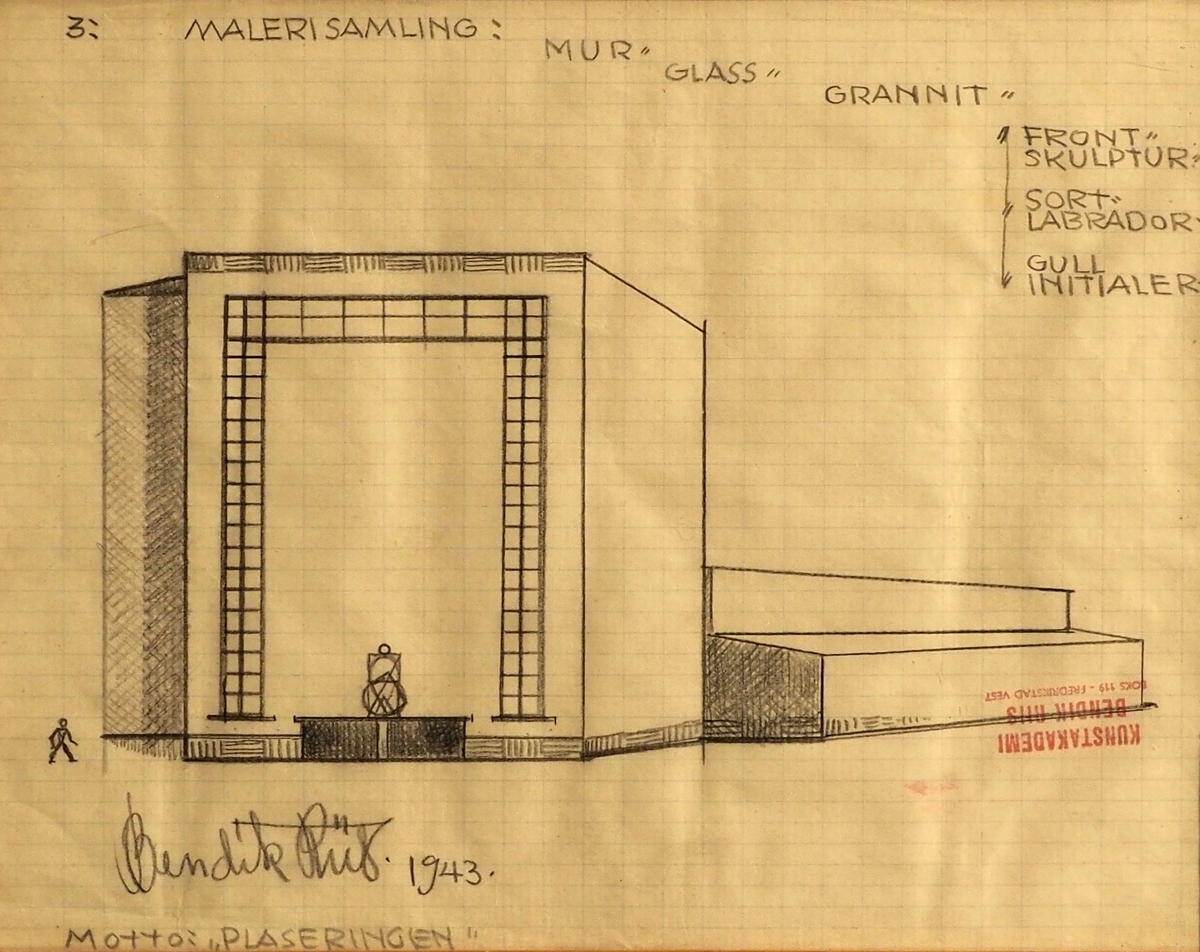 3: MALERISAMLING:
MUR"
GLASS"
GRANNIT"
FRONT"
SKULPTUR:
SORT"
LABRADOR
GULL
INITIALER
BOKS 119 - FREDRIKSTAD VEST
BENDIK RIIS
KUNSTAKADEMI
Bendik Riis. 1943.
Motto: „PLASERINGEN"